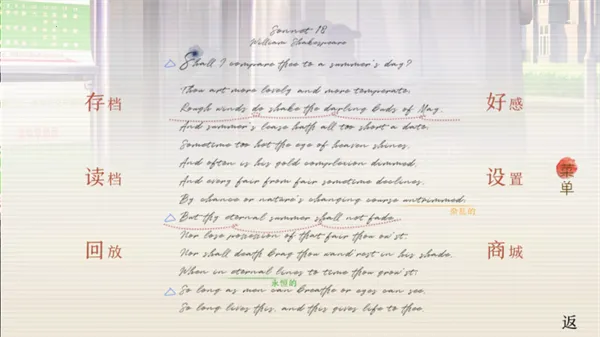 Sonnet 18
William Shakespeare
Shall I compare thee to a summer's day?
Thou art more lovely and more temperate.
Rough winds do shake the darling buds of May,
And summer's lease hath all too short a date.
Sometime too hot the eye of heaven shines,
And often is his gold complexion dimmed,
And every fair from fair sometime declines,
By chance or nature's changing course untrimmed.
杂乱的
But thy eternal summer shall not fade,
Nor lose possession of that fair thou ow'st,
Nor shall death brag thou wand'rest in his shade,
When in eternal lines to time thou grow'st.
永恒的
So long as men can breathe or eyes can see,
So long lives this, and this gives life to thee.
存档
读档
回放
好感
设置
商城
菜单
返